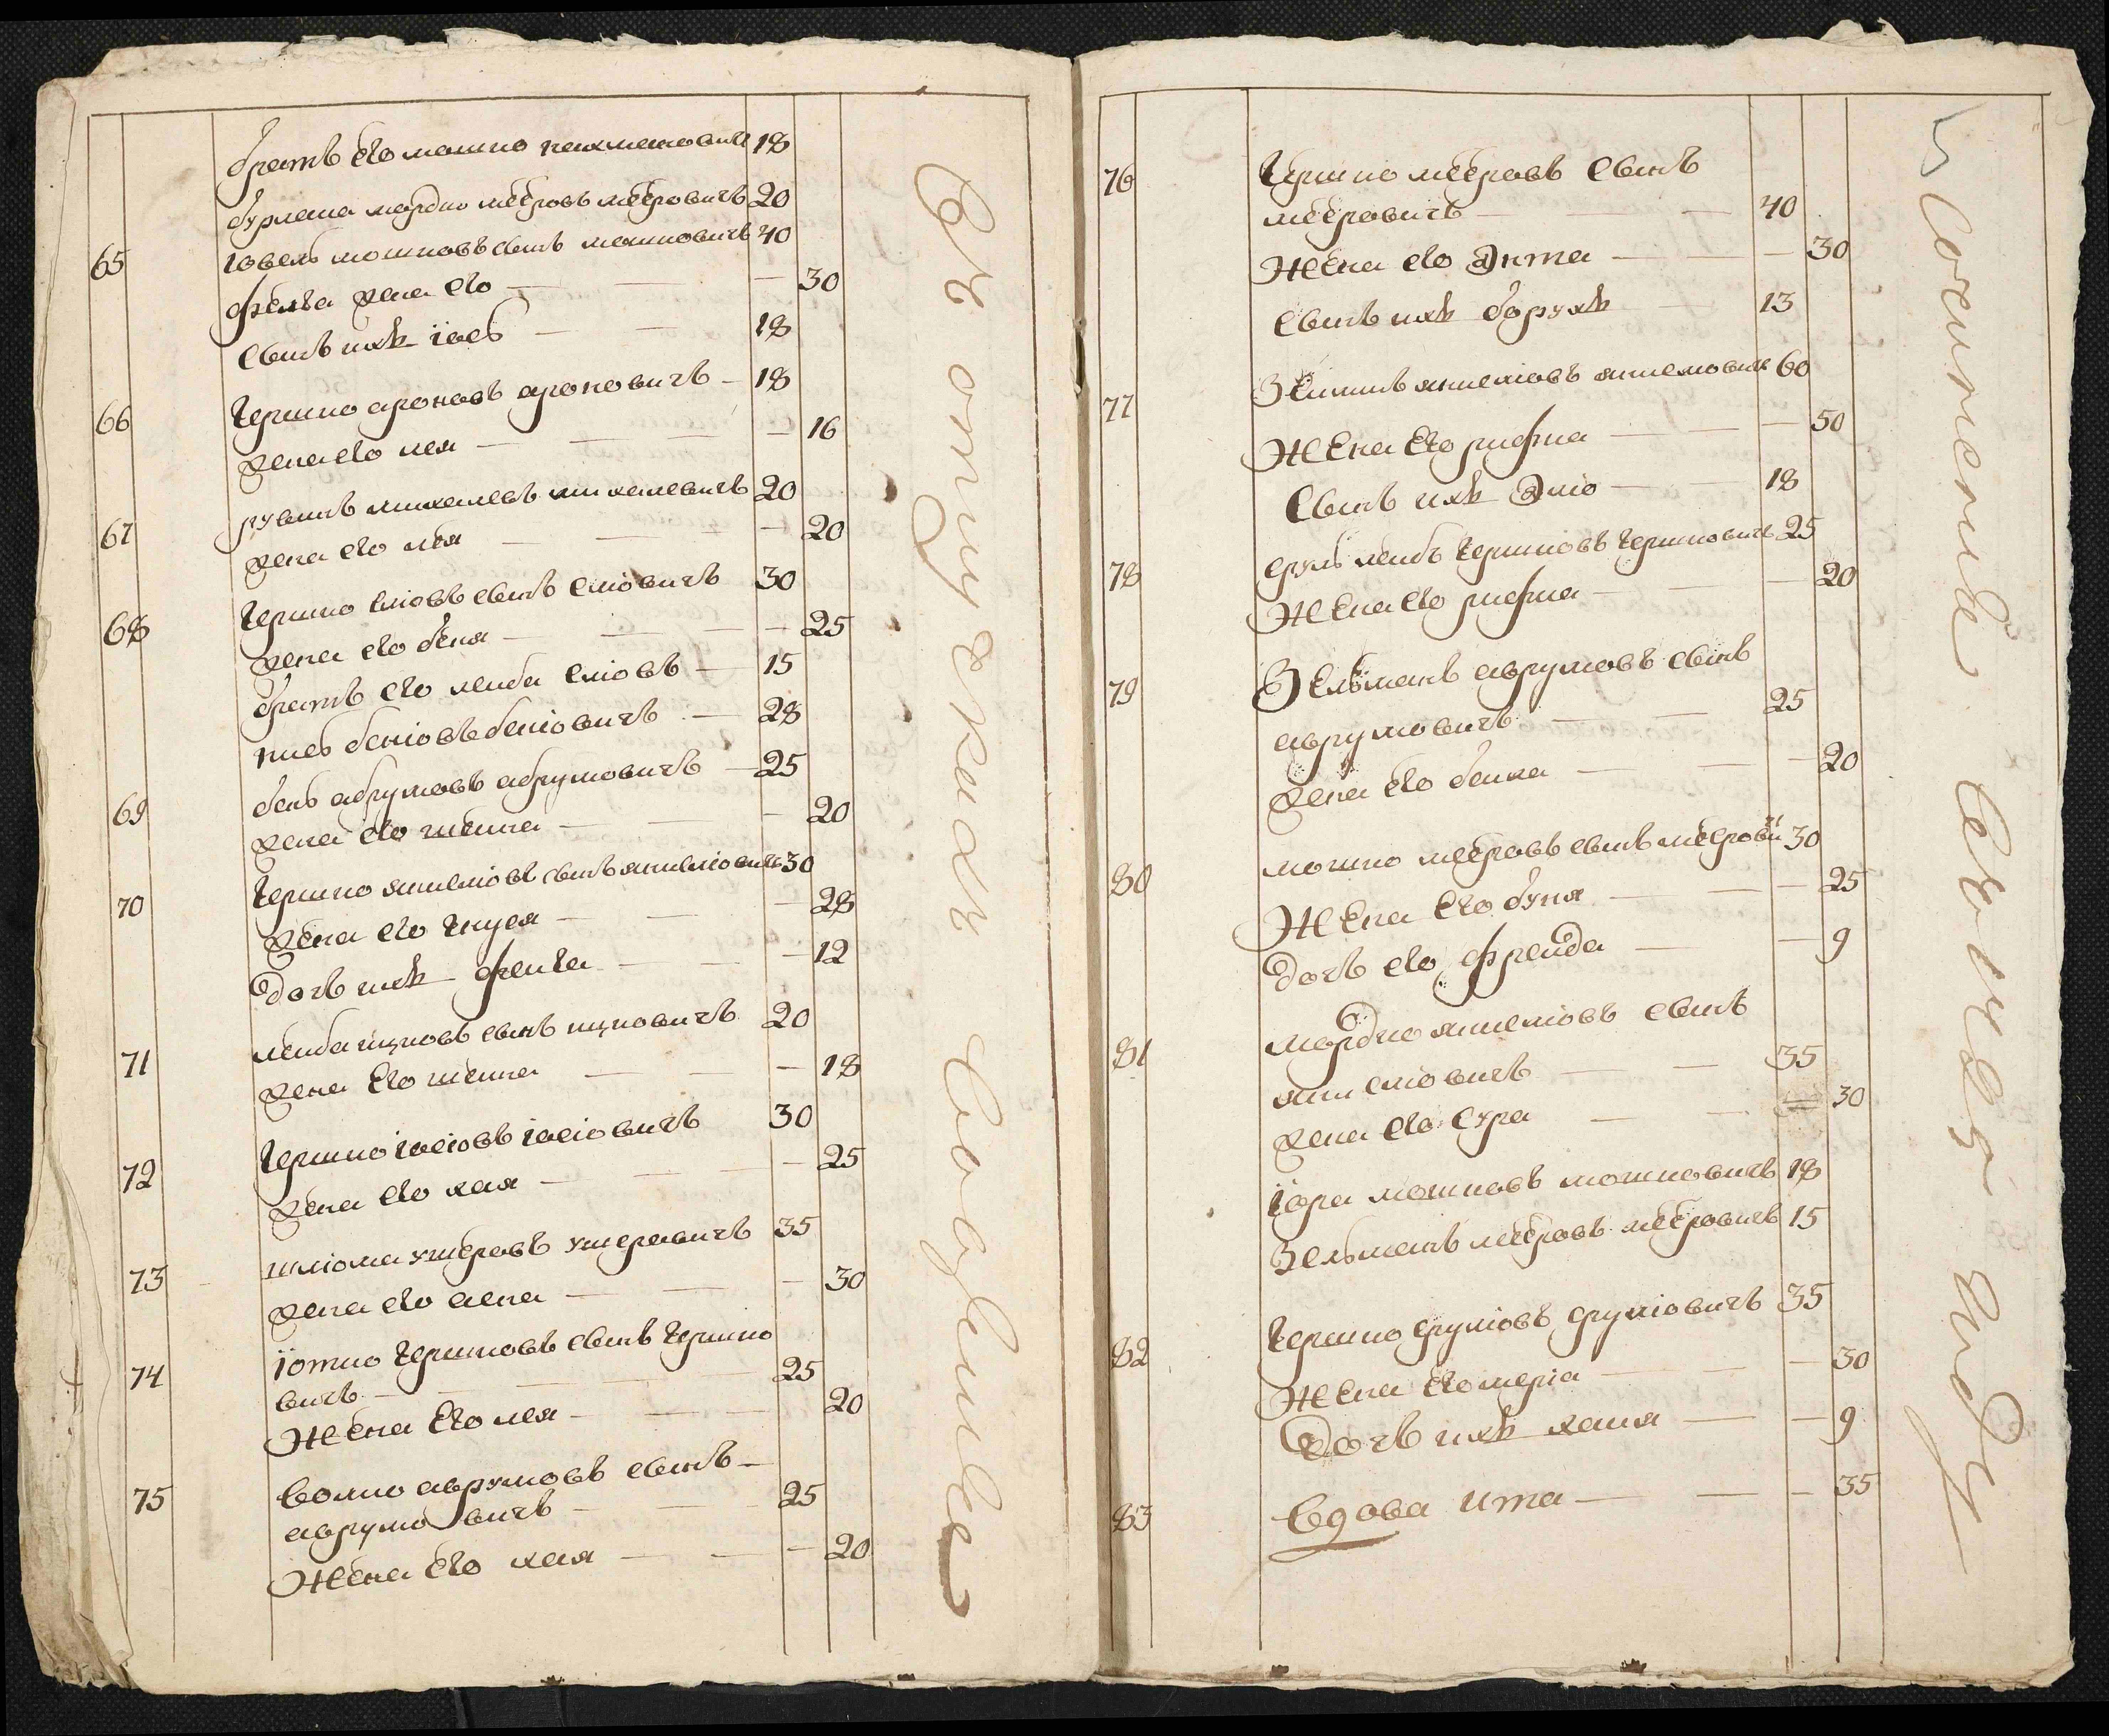 братъ его мошко нахмановичъ 18
бурлака мордко мееровъ мееровичъ 20
65 іовель мошковъ сынъ мошковичъ 40
фейга жена его — 30
сынъ ихъ іось — 18
66 гершко ароновъ ароновичъ — 18
жена его лея — 16
67 рувинъ михалевъ михалевичъ 20
жена его лея — 20
68 гершко еліовъ сынъ еліовичъ 30
жена его беня — 25
братъ его лейба еліовъ — 15
беніовъ беніовичъ — 28
69 бень абрумовъ абрумовичъ — 25
жена его шейна — 20
70 гершко яншеліовъ сынъ яншеліовичъ 30
жена его гнуся — 28
дочь ихъ фейга — 12
71 лейба ицковъ сынъ ицковичъ 20
жена его шейна — 18
72 гершко іосіовъ іосіовичъ 30
жена его хая — 25
73 шліома ушеровъ ушеровичъ 35
жена его — 30
74 іотко гершковъ сынъ гершко
вичъ — 25
жена его лея — 20
75 волко аврумовъ сынъ —
аврумовичъ — 25
жена его хая — 20
76 гершко мееровъ сынъ
мееровичъ — 40
жена его Элта — 30
сынъ ихъ борухъ — 13
77 яншеліовъ яншеловичъ 60
жена его рифка — 50
сынъ ихъ Эліо — 18
78 сруль лейбъ гершковъ гершковичъ 25
жена его рифка — 20
79 Зельманъ аврумовъ сынъ
аврумовичъ — 25
жена его бейла — 20
80 мошко мееровъ сынъ мееровичъ 30
жена его буня — 25
дочь его фрейда — 9
81 мордко яншеліовъ сынъ
яншеліовичъ — 35
жена его сура — 30
мошковъ мошковичъ 18
Зельманъ мееровъ мееровичъ 15
82 гершко сруліовъ сруліовичъ 35
жена его — 30
дочь ихъ хана — 9
83 вдова ита — 35